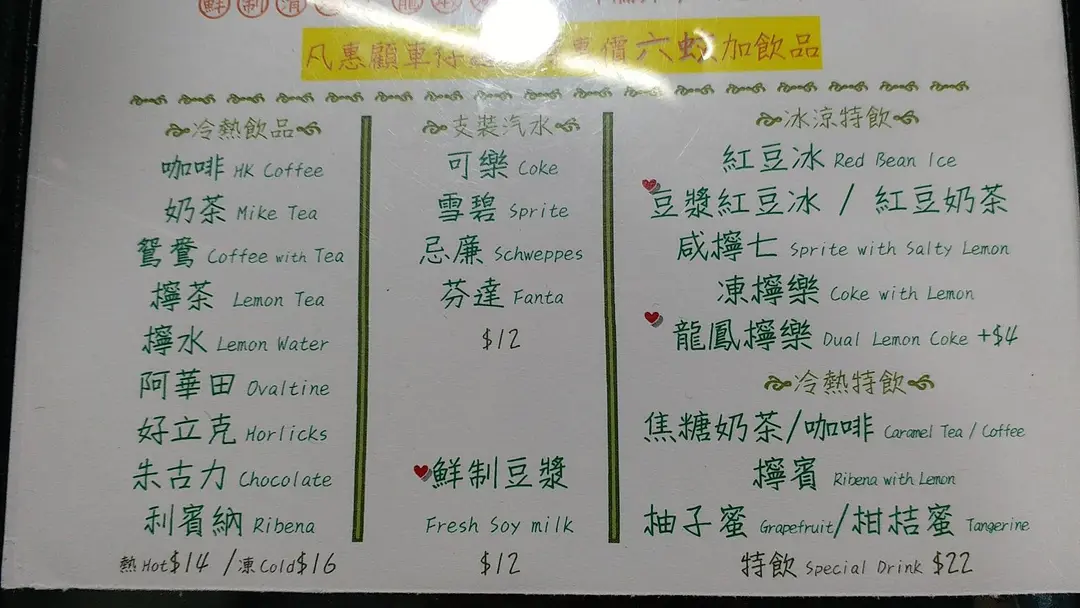 鮮制
凡惠顧車仔 惠價六蚊加飲品
冷熱飲品
咖啡 HK Coffee
奶茶 Mike Tea
鴛鴦 Coffee with Tea
檸茶 Lemon Tea
檸水 Lemon Water
阿華田 Ovaltine
好立克 Horlicks
朱古力 Chocolate
利賓納 Ribena
熱Hot$14 /凍Cold$16
支裝汽水
可樂 Coke
雪碧 Sprite
忌廉 Schweppes
芬達 Fanta
$12
鮮制豆漿
Fresh Soy milk
$12
冰涼特飲
紅豆冰 Red Bean Ice
豆漿紅豆冰 / 紅豆奶茶
咸檸七 Sprite with Salty Lemon
凍檸樂 Coke with Lemon
龍鳳檸樂 Dual Lemon Coke +$4
冷熱特飲
焦糖奶茶/咖啡 Caramel Tea / Coffee
檸賓 Ribena with Lemon
柚子蜜 Grapefruit/柑桔蜜 Tangerine
特飲 Special Drink $22